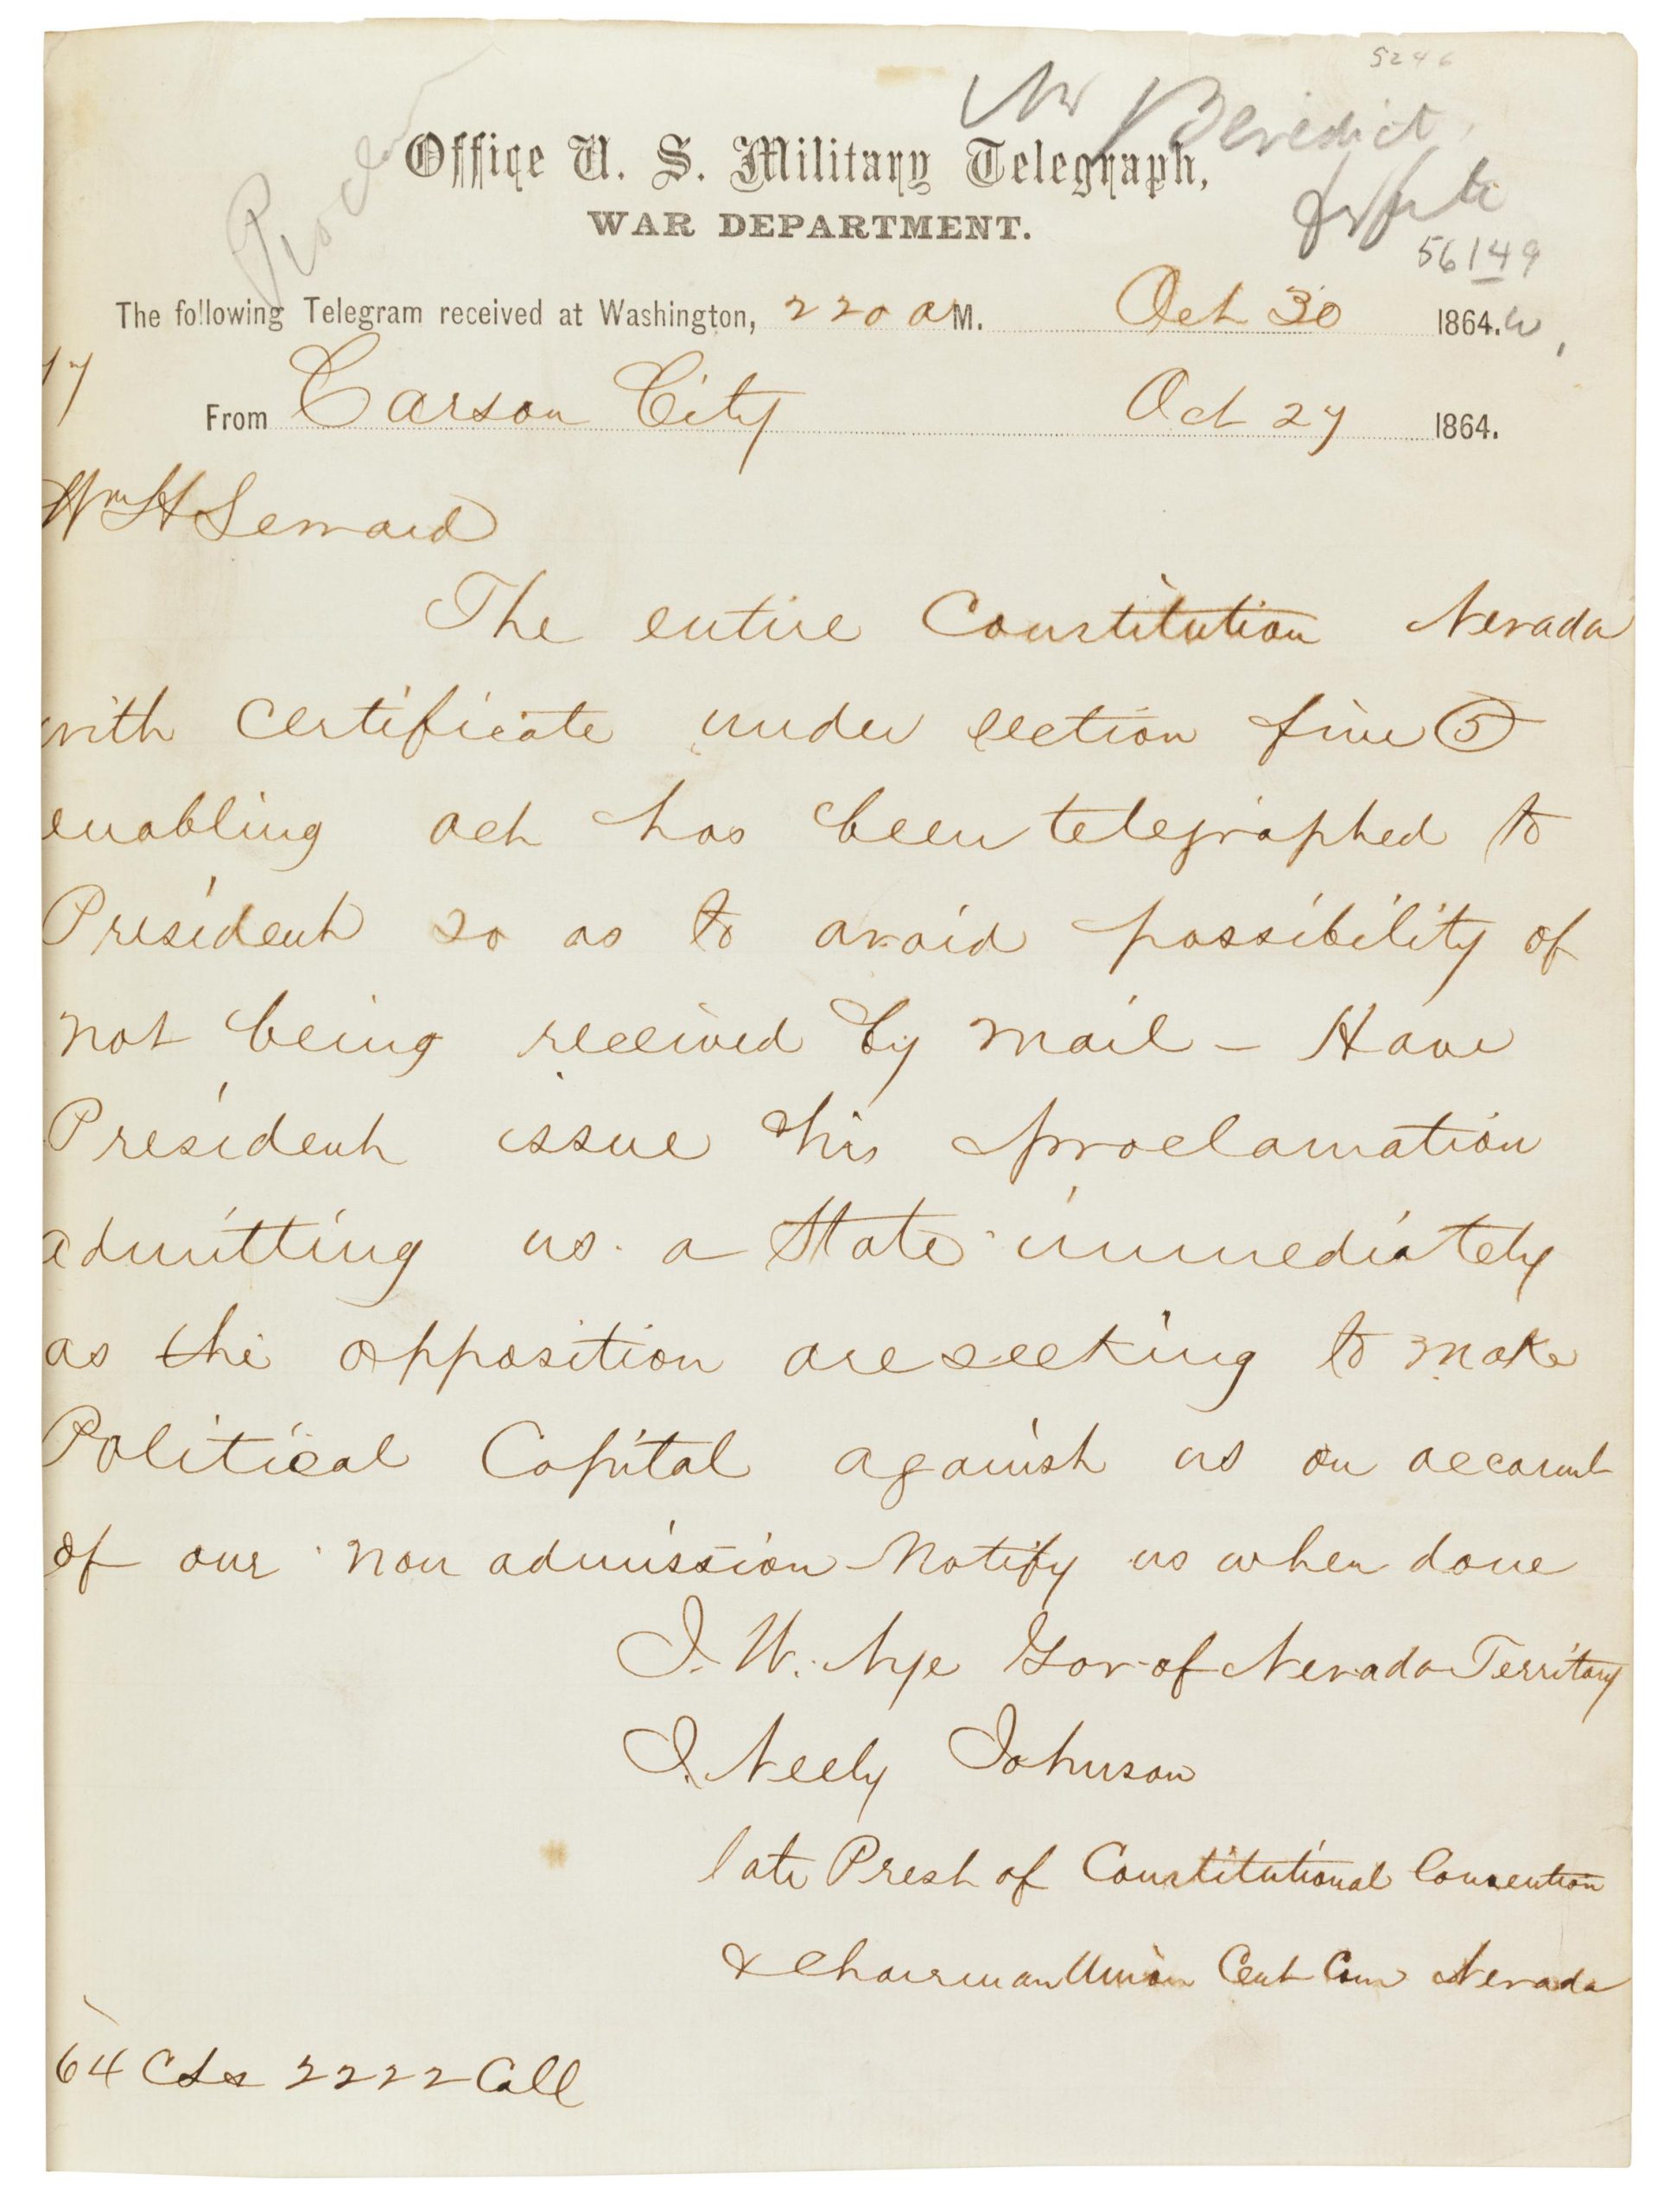 5246
Mr Benedict
Office U. S. Military Telegraph,
WAR DEPARTMENT.
56149
The following Telegram received at Washington, 2 20 a M. Oct 30 1864.
17
From Carson City Oct 27 1864.
Wm H Seward
The entire Constitution Nevada
with certificate under section five (5)
enabling act has been telegraphed to
President so as to avoid possibility of
not being received by mail – Have
President issue his proclamation
admitting us a State immediately
as the opposition are seeking to make
Political Capital against us on account
of our non admission – Notify us when done
J. W. Nye Gov of Nevada Territory
J. Neely Johnson
late Prest of Constitutional Convention
& Chairman Union Cent Com Nevada
64 Cts 2222 Coll